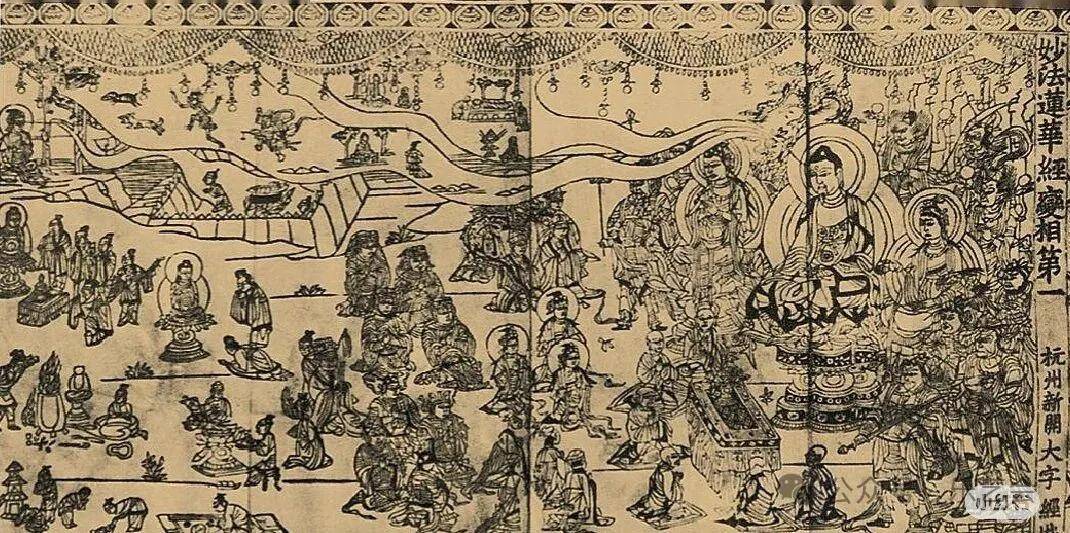 妙法蓮華經變相第一
杭州新開大字經
公众
小红书